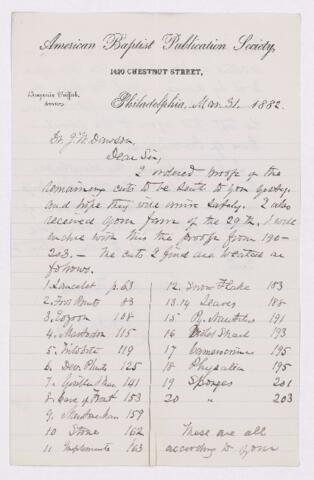 American Baptist Publication Society,
1420 CHESTNUT STREET,
Benjamin Griffith,
Philadelphia, Mar. 31, 1882.
Dr. J. W. Dawson,
Dear Sir,
I ordered proofs of the
remaining cuts to be sent to you
and hope they will arrive safely. I also
received your favor of the 29th. I will
enclose with this the proofs from 190-
203. — The cuts I find are located as
follows.
1 Lancelet p. 63
2. Foot Prints 83
3. Eozoon 108
4. Mastodon 115
5. Trilobite 119
6. Dev. Plants 125
7. 141
8. 153
9. 159
10. Stone 162
11 Implements 163
12. Snow Flake 183
13.14 Leaves 188
15 P. Nautilus 191
16 193
17 195
18 Physalia 195
19 Sponges 201
20 " 203
These are all
according to your